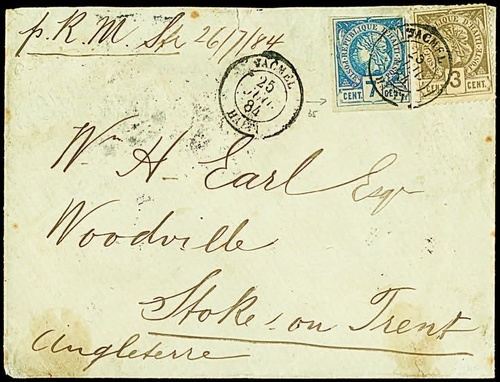 p. R. M Str 26/7/84
JACMEL
25
JUIL
84
HAITI
REPUBLIQUE D'HAITI
7
CENT.
REPUBLIQUE D'HAITI
3
CENT.
JACMEL
25
Wm H. Earl Esqr
Woodville
Stoke-on Trent
Angleterre